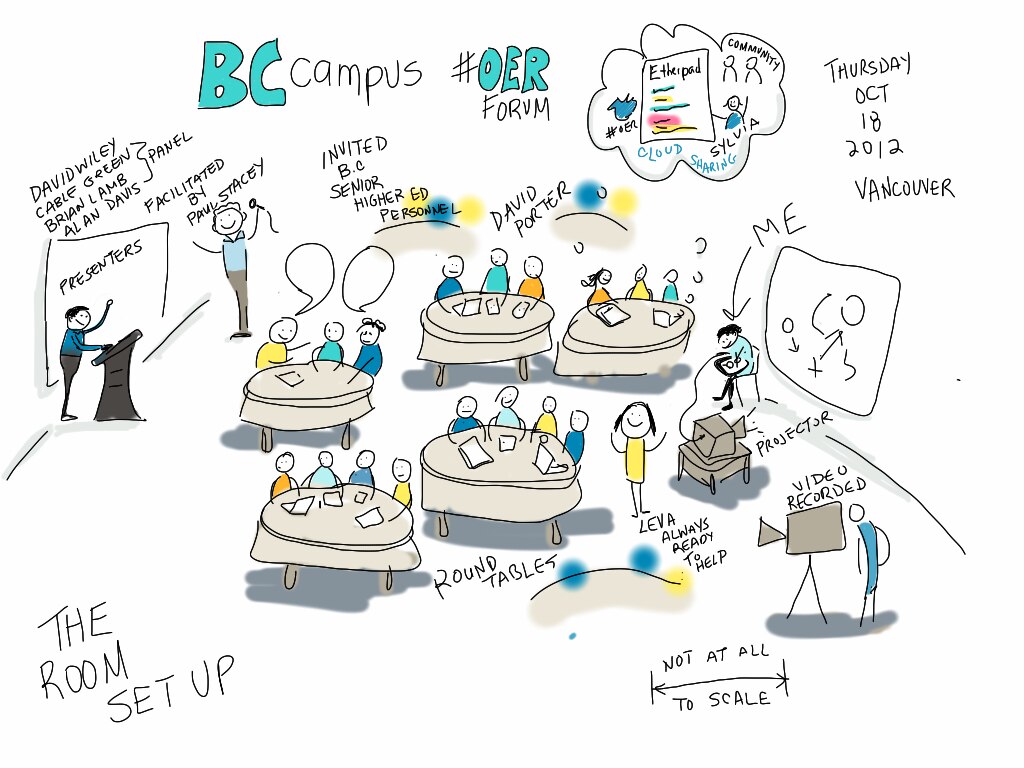 BCcampus #OER
FORUM
COMMUNITY
Etherpad
#OER
SYLVIA
CLOUD
SHARING
THURSDAY
OCT
18
2012
VANCOUVER
DAVID WILEY
CABLE GREEN
BRIAN LAMB
ALAN DAVIS
PANEL
FACILITATED
BY
PAUL STACEY
INVITED
B.C
SENIOR
HIGHER ED
PERSONNEL
DAVID
PORTER
ME
PRESENTERS
PROJECTOR
VIDEO
RECORDED
LEVA
ALWAYS
READY
TO
HELP
ROUND
TABLES
THE
ROOM
SET UP
NOT AT ALL
TO SCALE